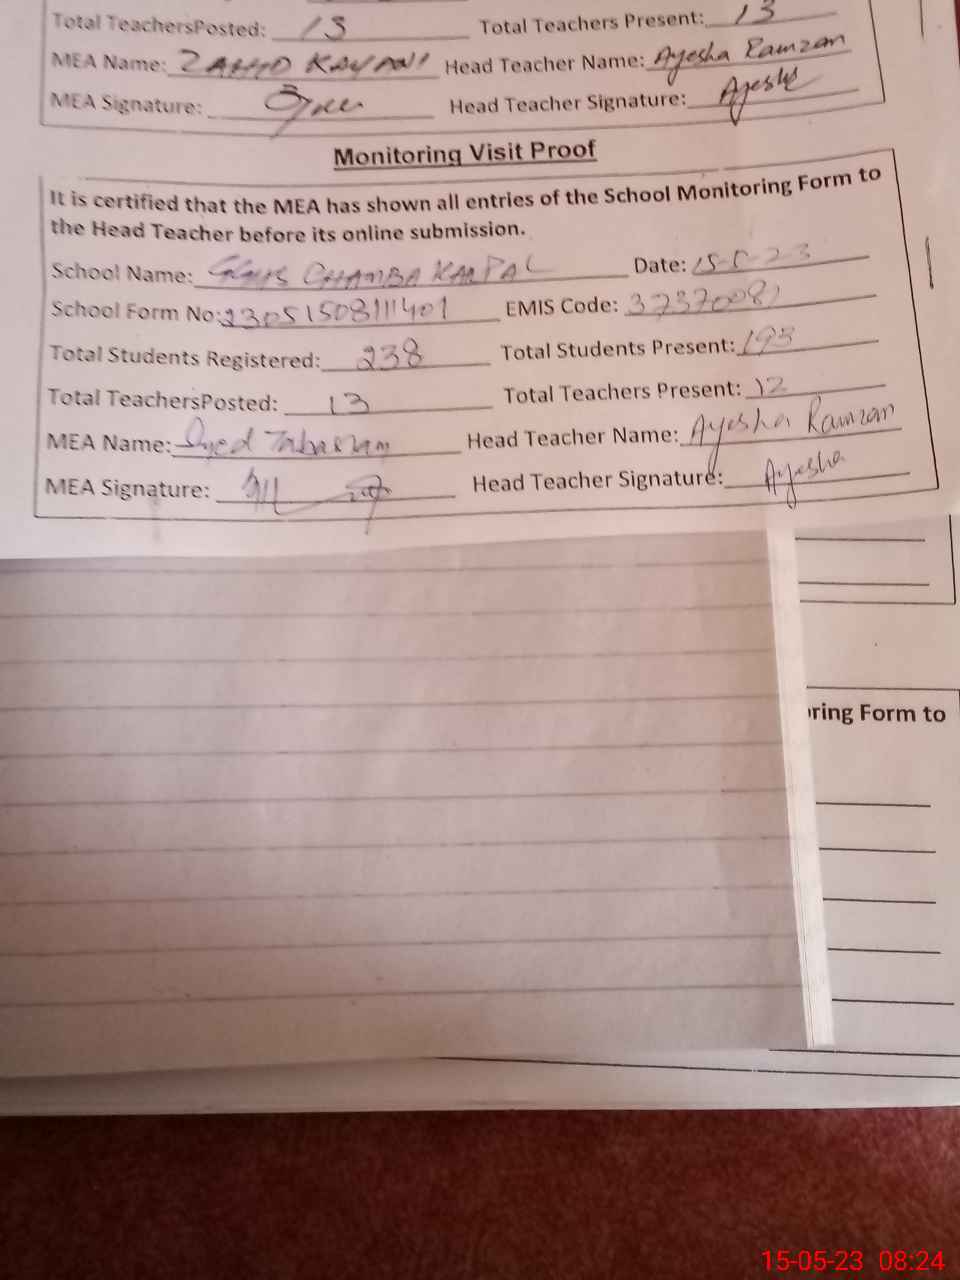 Total TeachersPosted: 13 Total Teachers Present: 13
MEA Name: ZAHID KAYANI Head Teacher Name: Ayesha Ramzan
MEA Signature: Head Teacher Signature: Ayesha
Monitoring Visit Proof
It is certified that the MEA has shown all entries of the School Monitoring Form to
the Head Teacher before its online submission.
School Name: CHAMBA KARPAL Date: 15-5-23
School Form No: 23051508111401 EMIS Code: 37370081
Total Students Registered: 238 Total Students Present: 193
Total TeachersPosted: 13 Total Teachers Present: 12
MEA Name: Syed Head Teacher Name: Ayesha Ramzan
MEA Signature: Head Teacher Signature: Ayesha
ring Form to
15-05-23 08:24